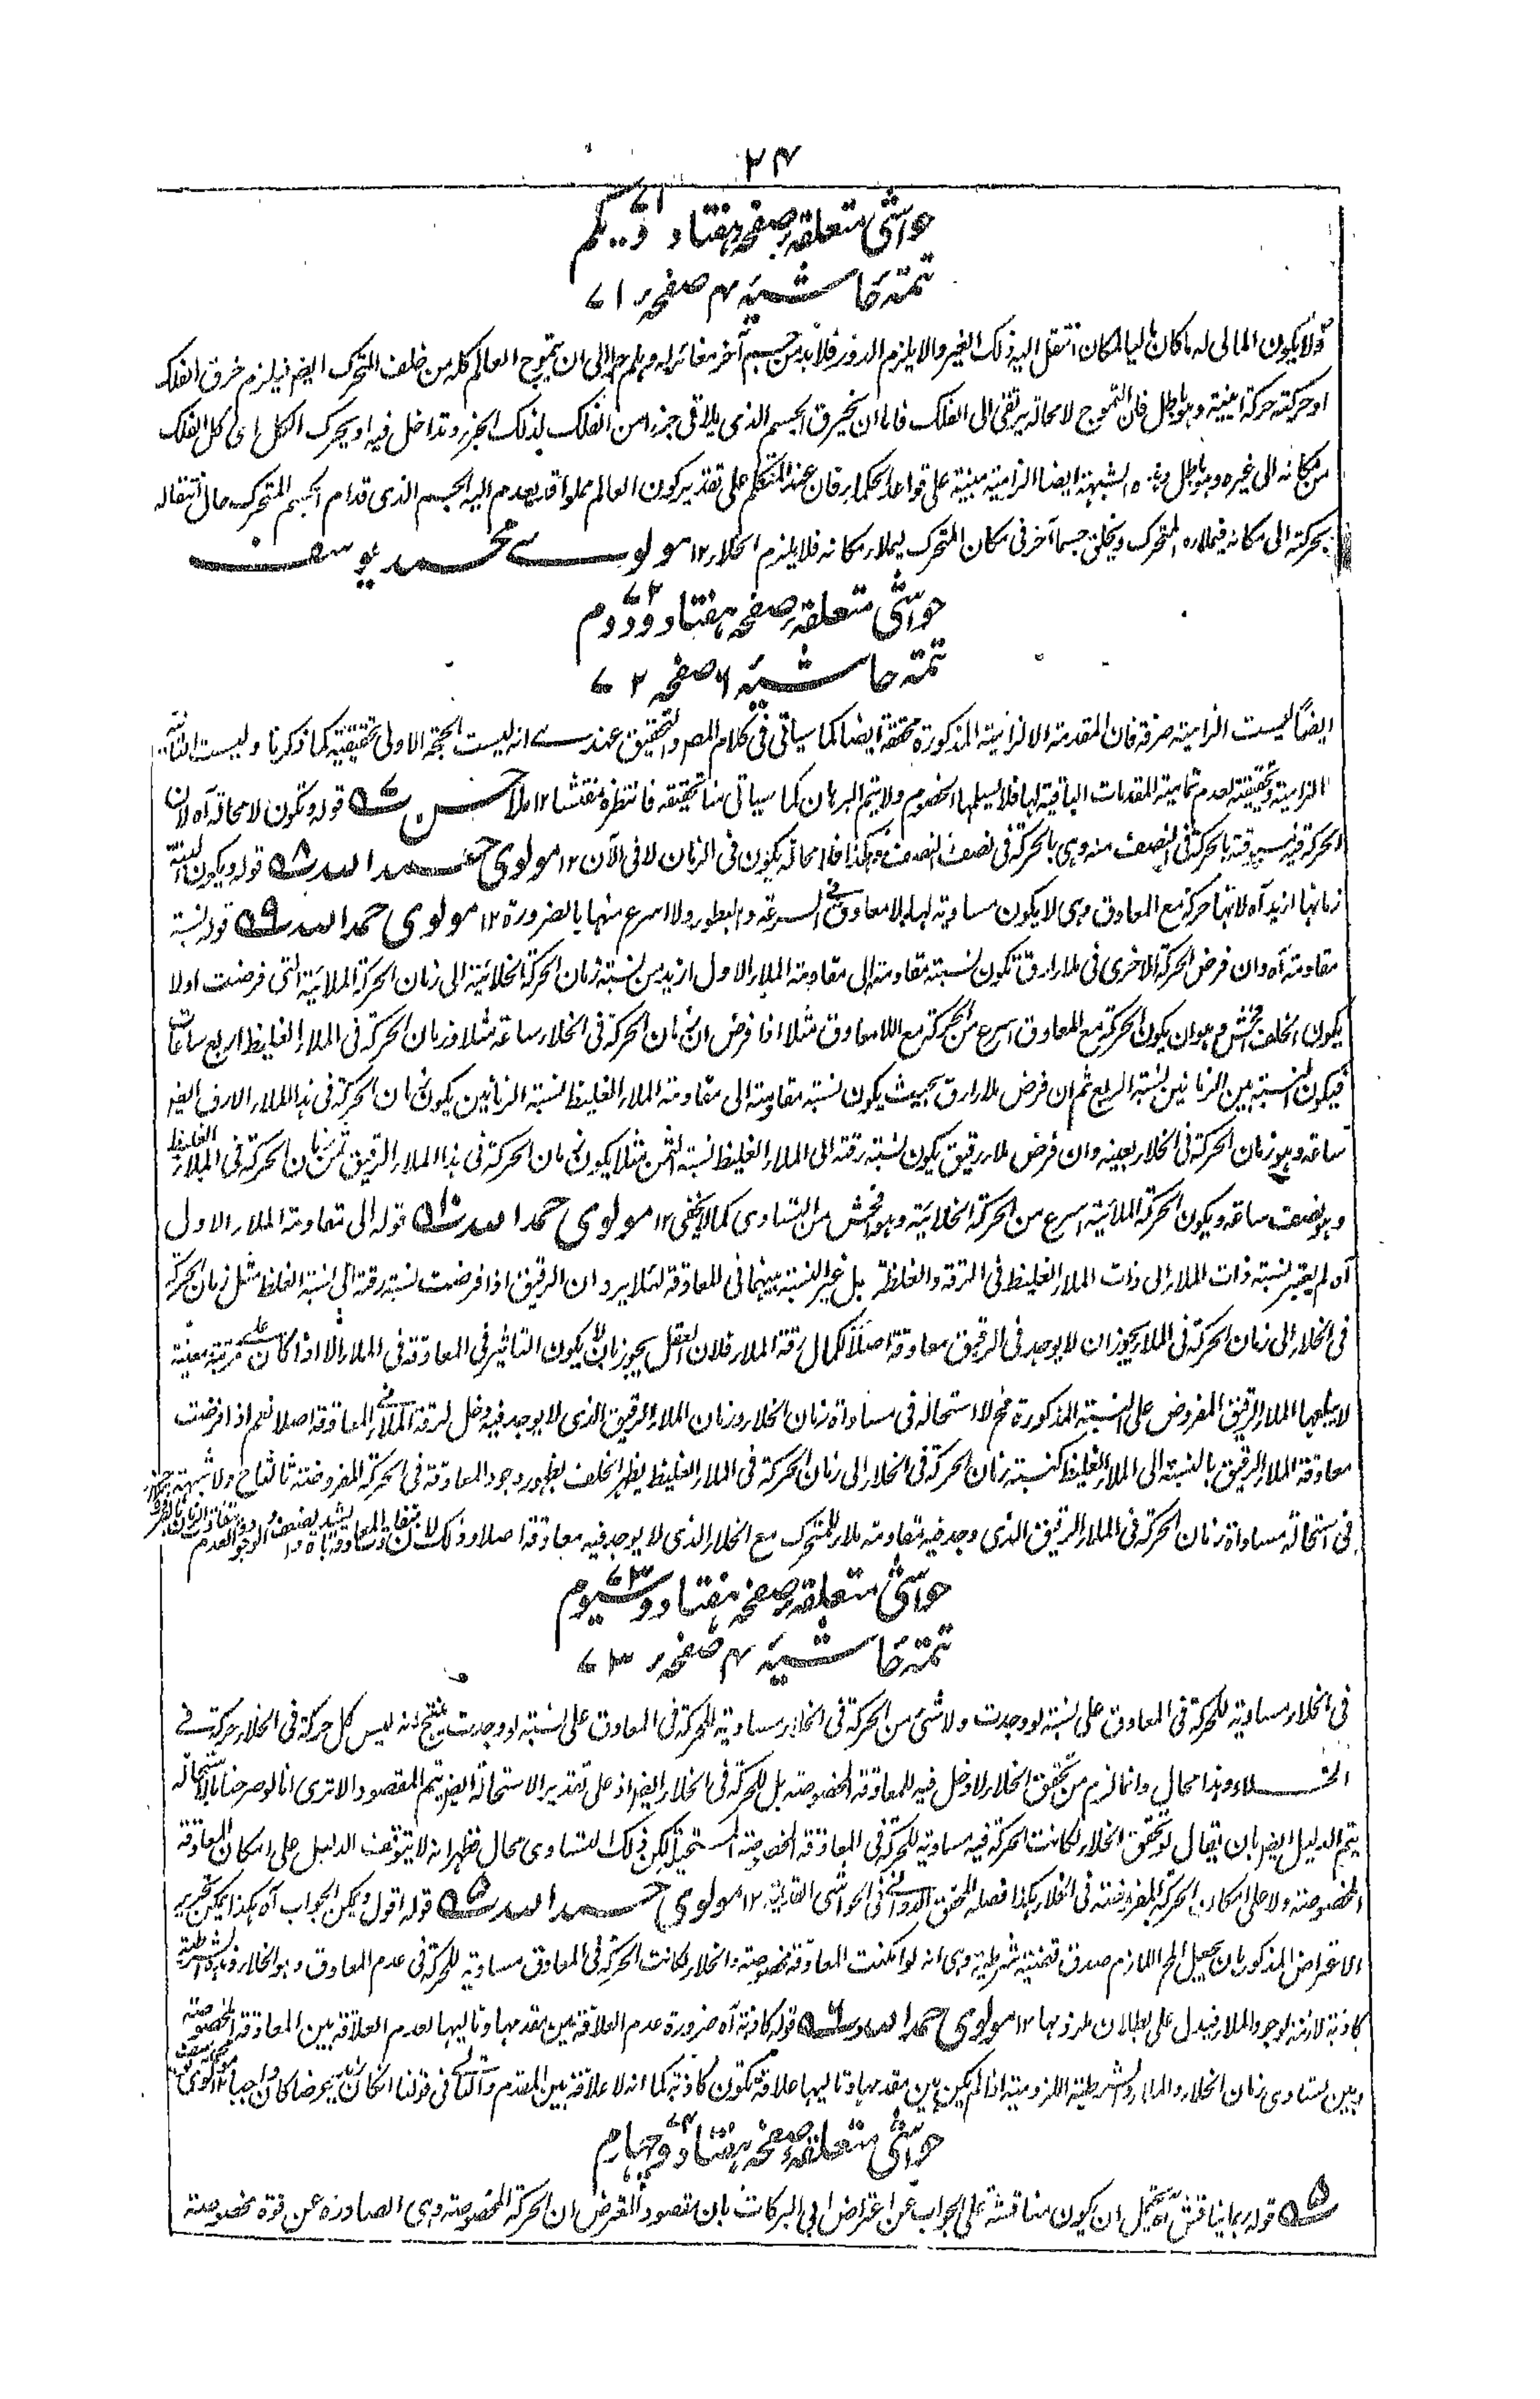 ۲۴
حواشی متعلقہ بصفحہ ہفتاد و یکم ۷۱
تتمۃ حاشیۃ ۴ صفحہ ۷۱
ولا یکون المالی لہ ما کان مالیا لمکان انتقل الیہ ذلک الغیر والا یلزم الدور فلا بد من جسم آخر مغائر لہ وہلم جرا الی ان یتموج العالم کلہ من خلف المتحرک ایضم فیلزم خرق الفلک
او حرکتہ حرکۃ اینیۃ وہو باطل فان التموج لا محالۃ یرتقی الی الفلک فاما ان یخرق الجسم الذی یلاقی جزءا من الفلک لذلک الجزء وتداخل فیہ او یحرک الکل ای کل الفلک
من مکانہ الی غیرہ وہو باطل وہذہ الشبہۃ ایضا الزامیۃ مبنیۃ علی قواعد الحکماء فان عند المتکلم علی تقدیر کون العالم مملوا قد یعدم الیہ الجسم الذی قدام الجسم المتحرک حال انتقالہ
بحرکتہ الی مکانہ فیملاءہ المتحرک ویخلق جسما آخر فی مکان المتحرک لیملاء مکانہ فلا یلزم الخلاء ۱۲ مولوی محمد یوسف
حواشی متعلقہ بصفحہ ہفتاد و دوم ۷۲
تتمۃ حاشیۃ ۶ صفحہ ۷۲
ایضاً لیست الزامیۃ صرفۃ فان المقدمۃ الالزامیۃ المذکورۃ محققۃ ایضا کما سیاتی فی کلام المصر والتحقیق عندے انہ لیست الحجۃ الاولی تحقیقیۃ کما ذکرنا ولیست الثانیۃ
الزامیۃ وتحقیقیۃ لعدم تمامیۃ المقدمات الباقیۃ لہا فلا یسلمہا الخصوم ولا یتم البرہان کما سیاتی منا تحقیقہ فانتظرہ مفتشا ۱۲ ملا حسن ۵ قولہ وتکون لا محالۃ آہ لان
الحرکۃ فیہ مسبوقۃ بالحرکۃ فی النصف منہ وہی بالحرکۃ فی نصف النصف وہکذا فلا محالۃ یکون فی الزمان لا فی الآن ۱۲ مولوی حمد اللہ ۸ قولہ ویکون البتۃ
زمانہا ازید آہ لانہا حرکۃ مع المعاوق وہی لا یکون مساویۃ لہا بلا معاوق فی السرعۃ والبطوء ولا اسرع منہا بالضرورۃ ۱۲ مولوی حمد اللہ ۹ قولہ نسبۃ
مقاومتہ آہ وان فرض الحرکۃ الاخری فی ملاء ارق تکون نسبۃ مقاومتہ الی مقاومۃ الملاء الاول ازید من نسبۃ زمان الحرکۃ الخلائیۃ الی زمان الحرکۃ الملائیۃ التی فرضت اولا
یکون الخلف افحش وہو ان یکون الحرکۃ مع المعاوق اسرع من الحرکۃ مع اللا معاوق مثلا اذا فرض ان زمان الحرکۃ فی الخلاء ساعۃ مثلا وزمان الحرکۃ فی الملاء الغلیظ اربع ساعات
فیکون النسبۃ بین الزمانین نسبۃ الربع ثم ان فرض ملاء ارق بحیث یکون نسبۃ مقاومتہ الی مقاومۃ الملاء الغلیظ نسبۃ الزمانین یکون زمان الحرکۃ فی ہذا الملاء الارق ایضم
ساعۃ وہو زمان الحرکۃ فی الخلاء بعینہ وان فرض ملاء رقیق یکون نسبۃ رقتہ الی الملاء الغلیظ نسبۃ الثمن مثلا یکون زمان الحرکۃ فی ہذا الملاء الرقیق ثمن زمان الحرکۃ فی الملاء الغلیظ
وہو نصف ساعۃ ویکون الحرکۃ الملائیۃ اسرع من الحرکۃ الخلائیۃ وہو افحش من التساوی کما لا یخفی ۱۲ مولوی حمد اللہ ۱۰ قولہ الی مقاومۃ الملاء الاول
آہ لم یعتبر نسبۃ ذات الملاء الی ذات الملاء الغلیظ فی الرقۃ والغلظۃ بل عبر النسبۃ بینہما فی المعاوقۃ لئلا یرد ان الرقیق اذا فرضت نسبۃ رقتہ الی نسبۃ الغلظ مثل زمان الحرکۃ
فی الخلاء الی زمان الحرکۃ فی الملاء یجوز ان لا یوجد فی الرقیق معاوقۃ اصلاً لکمال رقۃ الملاء فلان العقل یجوز بان لا یکون التاثیر فی المعاوقۃ فی الملاء الا اذا کان علی مرتبۃ معینۃ
لا یبلغہا الملاء الرقیق المفروض علی النسبۃ المذکورۃ فح لا استحالۃ فی مساواۃ زمان الخلاء وزمان الملاء الرقیق الذی لا یوجد فیہ دخل لرقۃ الملاء فی المعاوقۃ اصلا نعم اذا فرضت
معاوقۃ الملاء الرقیق بالنسبۃ الی الملاء الغلیظ کنسبۃ زمان الحرکۃ فی الخلاء الی زمان الحرکۃ فی الملاء الغلیظ یظہر الخلف بظہور وجود المعاوقۃ فی الحرکۃ المفروضۃ ثالثا ح ولا شبہۃ
فی استحالۃ مساواۃ زمان الحرکۃ فی الملاء الرقیق الذی وجد فیہ مقاومۃ ملاء للمتحرک مع الخلاء الذی لا یوجد فیہ معاوقۃ اصلا وذلک لان
حواشی متعلقہ بصفحہ ہفتاد و سیوم ۷۳
تتمۃ حاشیۃ ۴ صفحہ ۷۳
فی الخلاء مساویۃ للحرکۃ فی المعاوق علی نسبۃ لو وجدت ولا شیء من الحرکۃ فی الخلاء مساویۃ للحرکۃ فی المعاوق علی نسبۃ لو وجدت ینتج انہ لیس کل حرکۃ فی الخلاء حرکۃ فے
الخلاء وہذا محال وانما لزم من تحقق الخلاء لا دخل فیہ للمعاوقۃ المخصوصۃ بل للحرکۃ فی الخلاء ایضم اذ علی تقدیر الاستحالۃ ایضم یتم المقصود الا تری انا لو صرحنا بالاستحالۃ
یتم الدلیل ایضم بان یقال لو تحقق الخلاء لکانت الحرکۃ فیہ مساویۃ للحرکۃ فی المعاوقۃ المخصوصۃ المستحیلۃ لکن ذلک التساوی محال فظہر انہ لا یتوقف الدلیل علی امکان المعاوقۃ
المخصوصۃ ولا علی امکان الحرکۃ المفروضۃ فی الخلاء ہکذا فصلہ المحقق الدوانی فی الحواشی القدیمۃ ۱۲ مولوی حمد اللہ ۵ قولہ اقول ویمکن الجواب آہ ہکذا یمکن تحریر
الاعتراض المذکور بان یجعل الح اللازم صدق قضیۃ شرطیۃ وہی انہ لو امکنت المعاوقۃ مخصوصۃ والخلاء لکانت الحرکۃ فی المعاوق مساویۃ للحرکۃ فی عدم المعاوق وہو الخلاء وہذہ الشرطیۃ
کاذبۃ لازمۃ لوجود الملاء فیدل علی بطلان ملزومہا ۱۲ مولوی حمد اللہ ۶ قولہ کاذبۃ آہ ضرورۃ عدم العلاقۃ بین مقدمہا وتالیہا لعدم العلاقۃ بین المعاوقۃ المخصوصۃ
وبین تساوی زمان الخلاء والملاء والشرطیۃ اللزومیۃ اذا لم یکن بین مقدمہا وتالیہا علاقۃ تکون کاذبۃ کما انہ لا علاقۃ بین المقدم والتالی فی قولنا
حواشی متعلقہ بصفحہ ہفتاد و چہارم ۷۴
۵ قولہ ربما یناقش آہ یحتمل ان یکون مناقشۃ علی الجواب عن اعتراض ابی البرکات بان مقصود المعترض ان الحرکۃ المخصوصۃ وہی الصادرۃ عن قوۃ مخصوصۃ